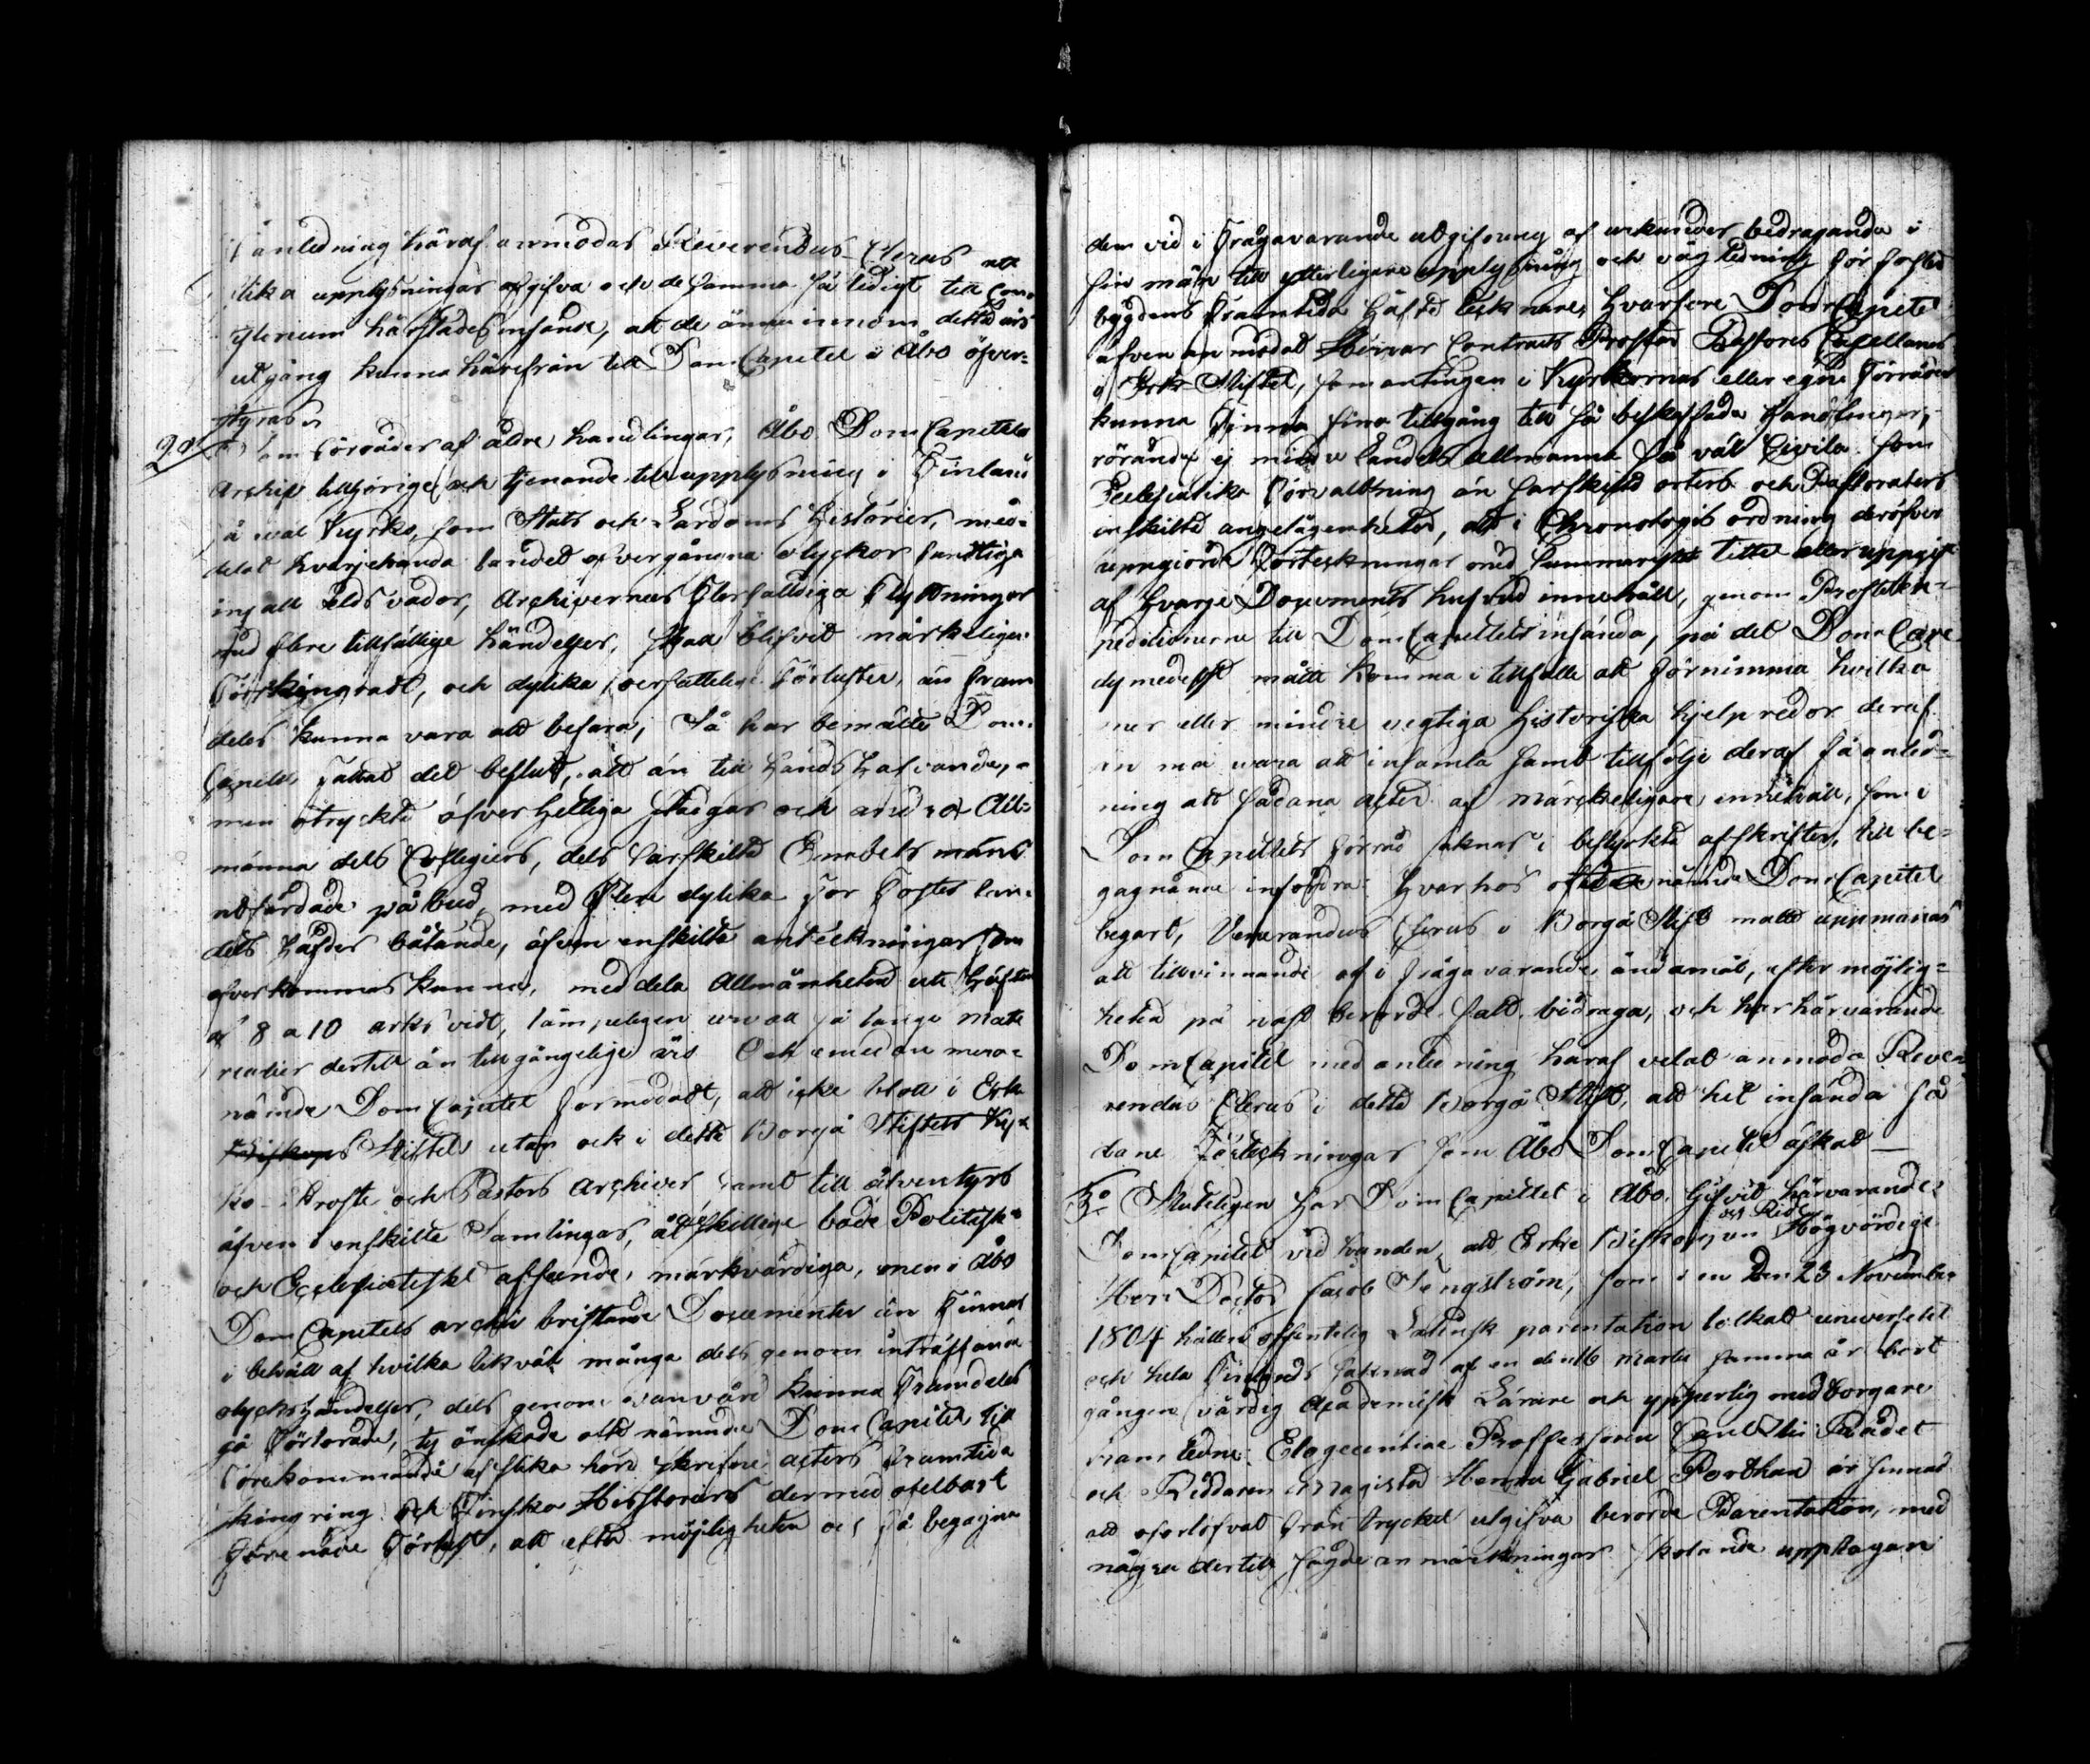 I anledning häraf anmodas Reverendus Clerus att
slika upplysningar afgifva och de samma så tidigt till Con-
sistorium härstädes insända, att de ännu innom detta års
utgång kunna härifrån till Dom Capitel i Åbo öfver-
styras
2:o Som förråder af äldre handlingar, Åbo Dom Capitels
Archif tillhörige och tjenande till upplysning i Finlands
så wäl Kyrko, som Stats och Lärdoms Historier, med-
delst hvarjehanda landet öfvergångna olyckor samtliga
Eldsvådor, Archivernes flerfalldiga flyttningar
med flere tillfällige händelser, skall blifvit märkeligen
förskingradt, och dylika oersättelige förluster, än fram
deles kunna vara att befara; Så har bemälte Dom
Capitel fattat det beslut, att än till hands hafvande,
men otryckte öfverhetliga skrifvelser och andra All-
männa dels Collegiers, dels särskilte Embets mäns
utfärdade påbud, med flere dylika för Foster lan-
dets häfder båtande, äfven enskilta anteckningar som
öfverkommas kunna, meddela Allmänheten uti häften
af 8 a 10 arks vidt, lämpeligen så länge mate
rialier dertill än tillgängelige äro Och emedan merbe-
nämde Dom Capitel förmodadt, att icke blott i Erke
Stiftet utan ock i detta Borgå Stiftets Kyr-
ko- Prosts och Pastors Archiver samt till äfventyrs
äfven i enskilte Samlingar, åtskillige både Politiskt
och Ecclesiastiskt afseende, märkvärdiga, men i Åbo
Dom Capitels archiv bristande Documenter än finnas
i behåll af hvilka likväl många dels genom inträffande
olyckshändelser, dels genom vanvård kunna framdeles
gå förlorade, ty önskade ofta nämnde Dom Capitel till
förekommande af slika hors skrifne acters framtida
skingring och Finska Historiens dermed ofelbart
förenade förlust, att efter möjligheten och få begagna
dem vid i frågavarande utgifning af urkunder bidragande i
sin mån till ytterligare upplysning och vägledning för foster
bygdens framtida häfde tecknare, Hvarföre Dom Capitel
äfven anmodat Herrar Contracts Prostar Pastores Capellaner
i Erke Stiftet, som antingen i Kyrkornas eller egne förråder
kunna finna sina tillgång till så beskaffade handlingar,
rörande ej mindre landets allmänna så väl Civila som
Ecclesiastika förvaltning än särskilte orters och Pastoraters
enskilte angelägenheter, att i Chronologisk ordning deröfver
uppgjorde förteckningar med Summarisk Tittel eller uppgift
af hvarje Documents hufvud innehåll, genom Prosteex-
peditionerne till Dom Capittelet insända, på det Dom Cape
dymedelst måtte komma i tillfälle att förnimma hvilka
mer eller mindre vigtiga historiska hjelpredor deraf
än må vara att insamla samt till följe deraf få anled-
ning att sådana acter af märkeligare innehåll, som i
Dom Capitlets förråd saknas i bestyrkte afskrifter, till be-
gagnande infordra: Hvarhos ofta nämnda Dom Capitel
begärt, Venerandus Clerus i Borgå Stift måtte uppmanas
att tillvinnande af i frågavarande ändamål, efter möjlig-
heten på nyss berörde sätt bidraga, och har härvarande
Dom Capitel med anledning häraf velat anmoda Reve-
rendus Clerus i detta Borgå Stift, att hit insända så
dane Förteckningar som Åbo Dom Capitel äskat —
3:o Sluteligen har Dom Capitlet i Åbo gifvit härvarande
Dom Capitel vid handen, att Erke Biskopen Högvördige
och Ridd.
Herr Doctor Jacob Tengström, som i en Den 23 November
1804 hållen offentelig Latinsk parentation tolkat universitetet
och hela Finlands saknad af en den 16 Martii samma år bort
gången värdig Academisk Lärare och ypperlig medborgare
fram ledne Eloquentiae Professoren Cancellie Rådet
och Riddaren Magister Henric Gabriel Porthan är sinnad
att oförtöfvat från trycket utgifva berörde Parentation, med
någre dertill fogde anmärkningar skolande upptagan